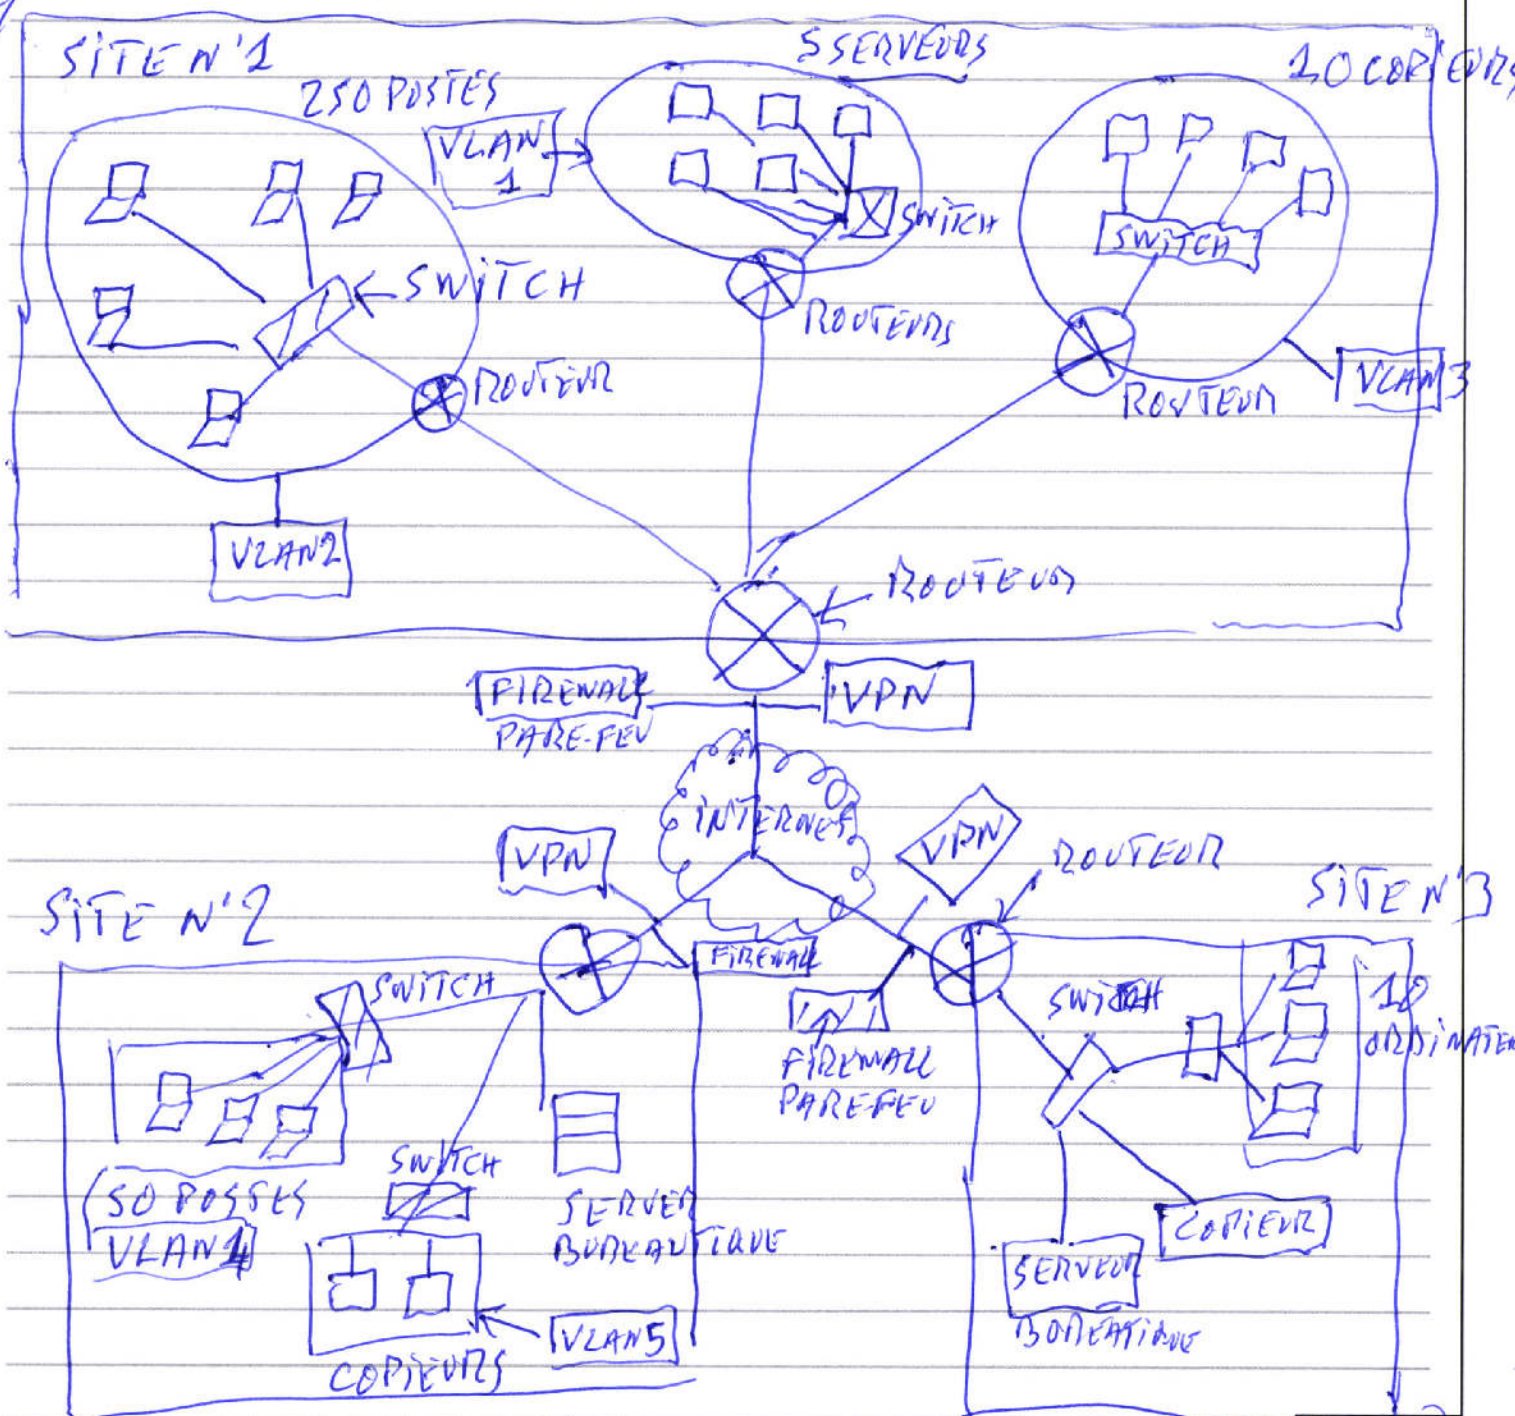 SITE N°1
250 POSTES
5 SERVEURS
10 COPIEURS
VLAN
1
SWITCH
SWITCH
SWITCH
ROUTEUR
ROUTEURS
ROUTEUR
VLAN3
VLAN2
ROUTEUR
FIREWALL
PARE-FEU
VPN
INTERNET
VPN
VPN
ROUTEUR
SITE N°2
SITE N°3
FIREWALL
SWITCH
SWITCH
10
ORDINATEU
FIREWALL
PARE-FEU
50 POSTES
VLAN4
SWITCH
SERVER
BUREAUTIQUE
COPIEUR
SERVEUR
BUREATIQUE
VLAN5
COPIEURS